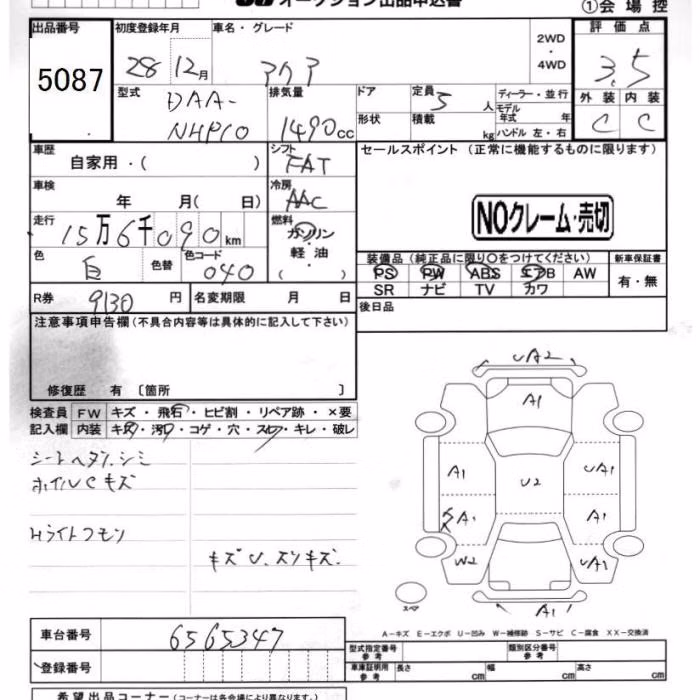 オークション出品申込書
①会場控
出品番号 初度登録年月 車名・グレード 2WD・4WD 評価点
5087 28 12月 アクア 3.5
型式 DAA-NHP10 排気量 1490cc
ドア 定員 5人 ディーラー・並行 外装 内装
形状 積載 kg モデル年式 年 C C
ハンドル 左・右
車歴 自家用・( ) シフト FAT セールスポイント (正常に機能するものに限ります)
車検 年 月( 日) 冷房 AAC
NOクレーム・売切
走行 15万6千090km 燃料 ガソリン 軽油
装備品(純正品に限り〇をつけてください) 新車保証書
色 白 色替 色コード 040 ( )
PS PW ABS エアB AW 有・無
SR ナビ TV カワ
R券 9130円 名変期限 月 日 後日品
注意事項申告欄(不具合内容等は具体的に記入して下さい)
修復歴 有 〔箇所 〕
検査員 FW キズ・飛石・ヒビ割・リペア跡・×要
記入欄 内装 キズ・汚レ・コゲ・穴・スレ・キレ・破レ
シートヘタリ、シミ
ホイルUCキズ
Hライトクモリ
UA2
A1
A1 U2 UA1
A1 A1
W2 UA1
A1
スペア
A-キズ E-エクボ U-凹み W-補修跡 S-サビ C-腐食 XX-交換済
車台番号 6565347
型式指定番号 参考 類別区分番号 参考
登録番号 車庫証明用 参考 長さ cm 幅 cm 高さ cm
希望出品コーナー(コーナーは各会場により異なります。)